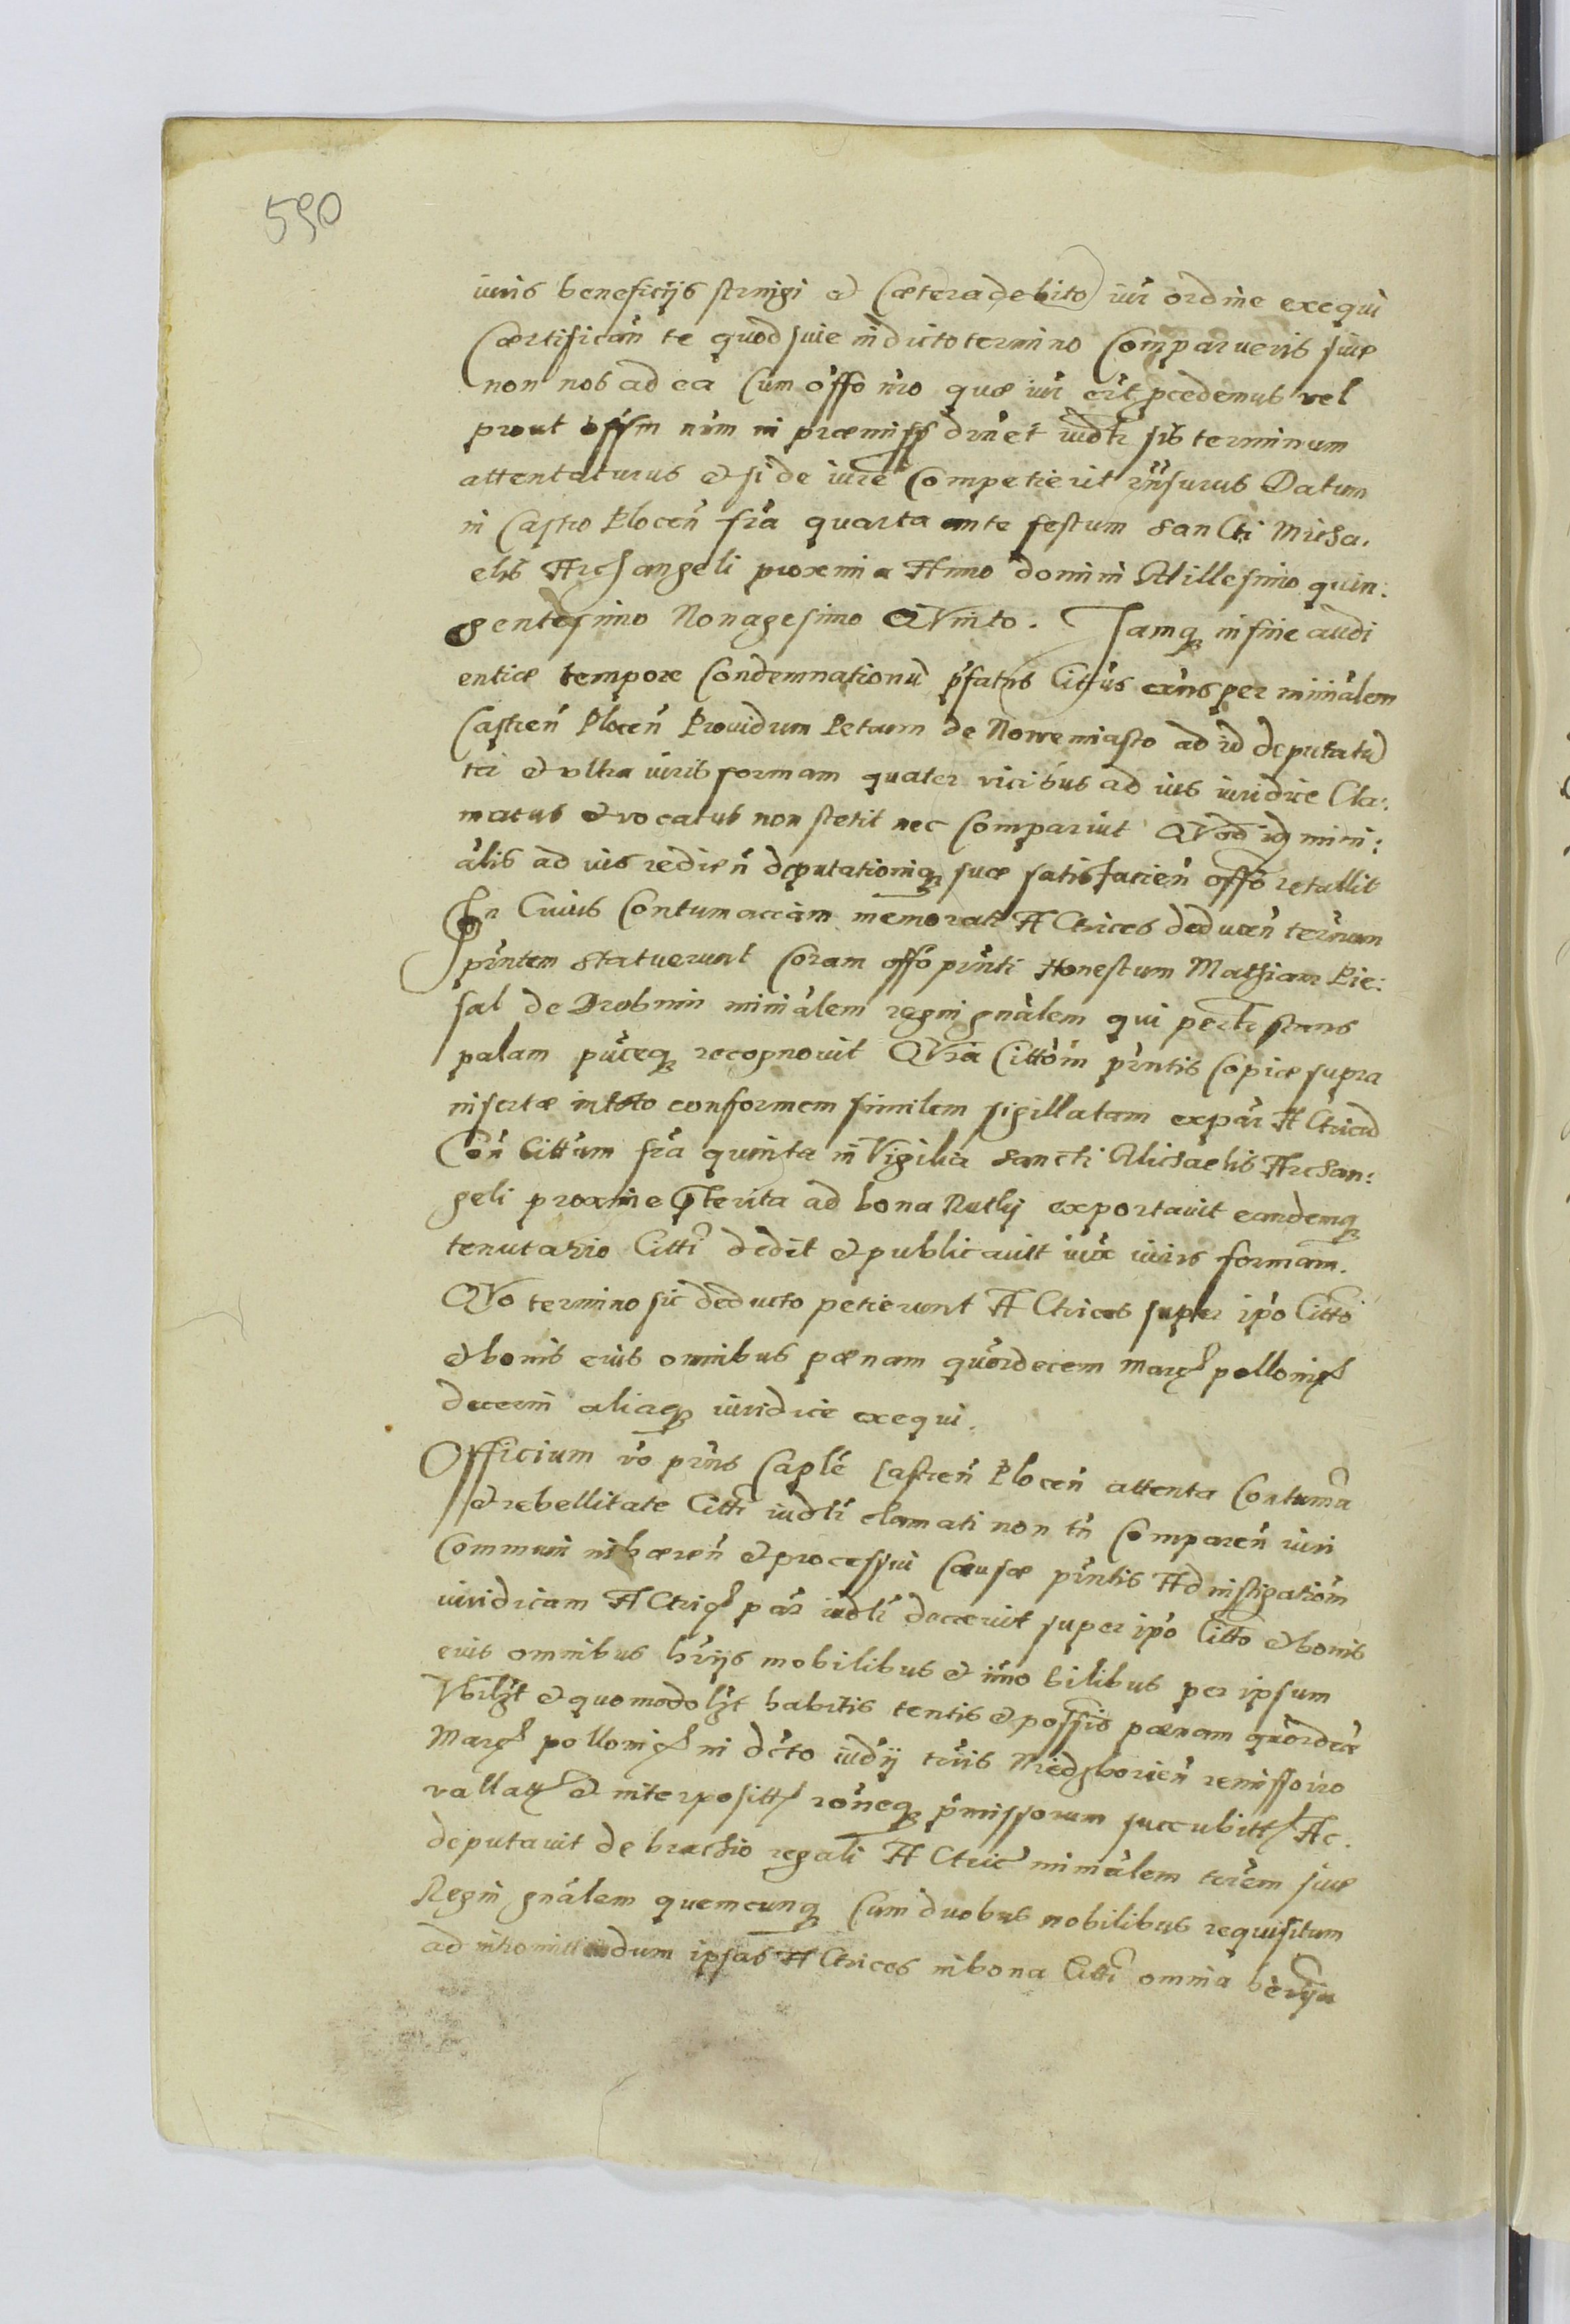 590
iuris beneficijs stringi et Cætera debito iur ordine exequi
Cærtifican te quod siue in dicto termino Comparueris siue
non nos ad ea Cum offo nro quæ iur erit pcedemus vel
prout offm nrm in præmiss drnet iudlr sis terminum
attentaturus et si de iure Competierit rnsurus Datum
in Castro Plocen fria quarta ante festum SanCti Micha:
elis Archangeli proxima Anno domini Millesimo quin:
gentesimo Nonagesimo QVinto. Iamq in fine audi
entiæ tempore Condemnationu pfatus Cittus exns per minralem
Castren Plocen Prouidum Petrum de Nowemiasto ad id deputatu
ter et vltra iuris formam quater vicibus ad ius iuridice Cla:
matus et vocatus non stetit nec Comparuit QVod idq mini:
alis ad ius redien deputationiq suæ satisfacien offo retullit
In Cuius Contumaciam memoratæ ACtrices deducen ternum
pnntem statuerunt Coram offo pnnti Honestum Mathiam Pie:
sal de Drobnin minialem regni gnalem qui perlr stans
palam puceq recognouit QVia Cittom pnntis Copiæ supra
insertæ in toto conformem similem sigillatam ex par ACtricu
Con Cittum fria quinta in Vigilia Sancti Michaelis Archan:
geli proxime pterita ad bona Rutly exportauit eandemq
tenutario Citti dedit et publicauitt iuxa iuris formam.
QVo termino sic deducto petierunt ACtrices super ipo Citto
et bonis eius omnibus pænam quordecem Marc pollonic
decerni aliaq iuridice exequi.
Officium vo pnns Caple Castren Plocen attenta Contuma
et rebellitate Citti iudlr clamati non tn Comparen iuri
Communi inhæren et processui Causæ pnntis Ad instigatiom
iuridicam ACtric par iudlr decreuit super ipo Citto et bonis
eius omnibus hrijs mobilibus et imobilibus per ipsum
Vbilzt et quomodolzt habitis tentis et possis pænam quordece
Marc pollonic in dcto iudij trris Niedzborien remissorio
vallat et interposittt roneq pmissorum succubitt Ac.
deputauit de brachio regali ACtric minralem trrem siue
Regni gnalem quemcunq Cum duobus nobilibus requisitum
ad intromittendum ipsas ACtrices in bona Citti omnia herija